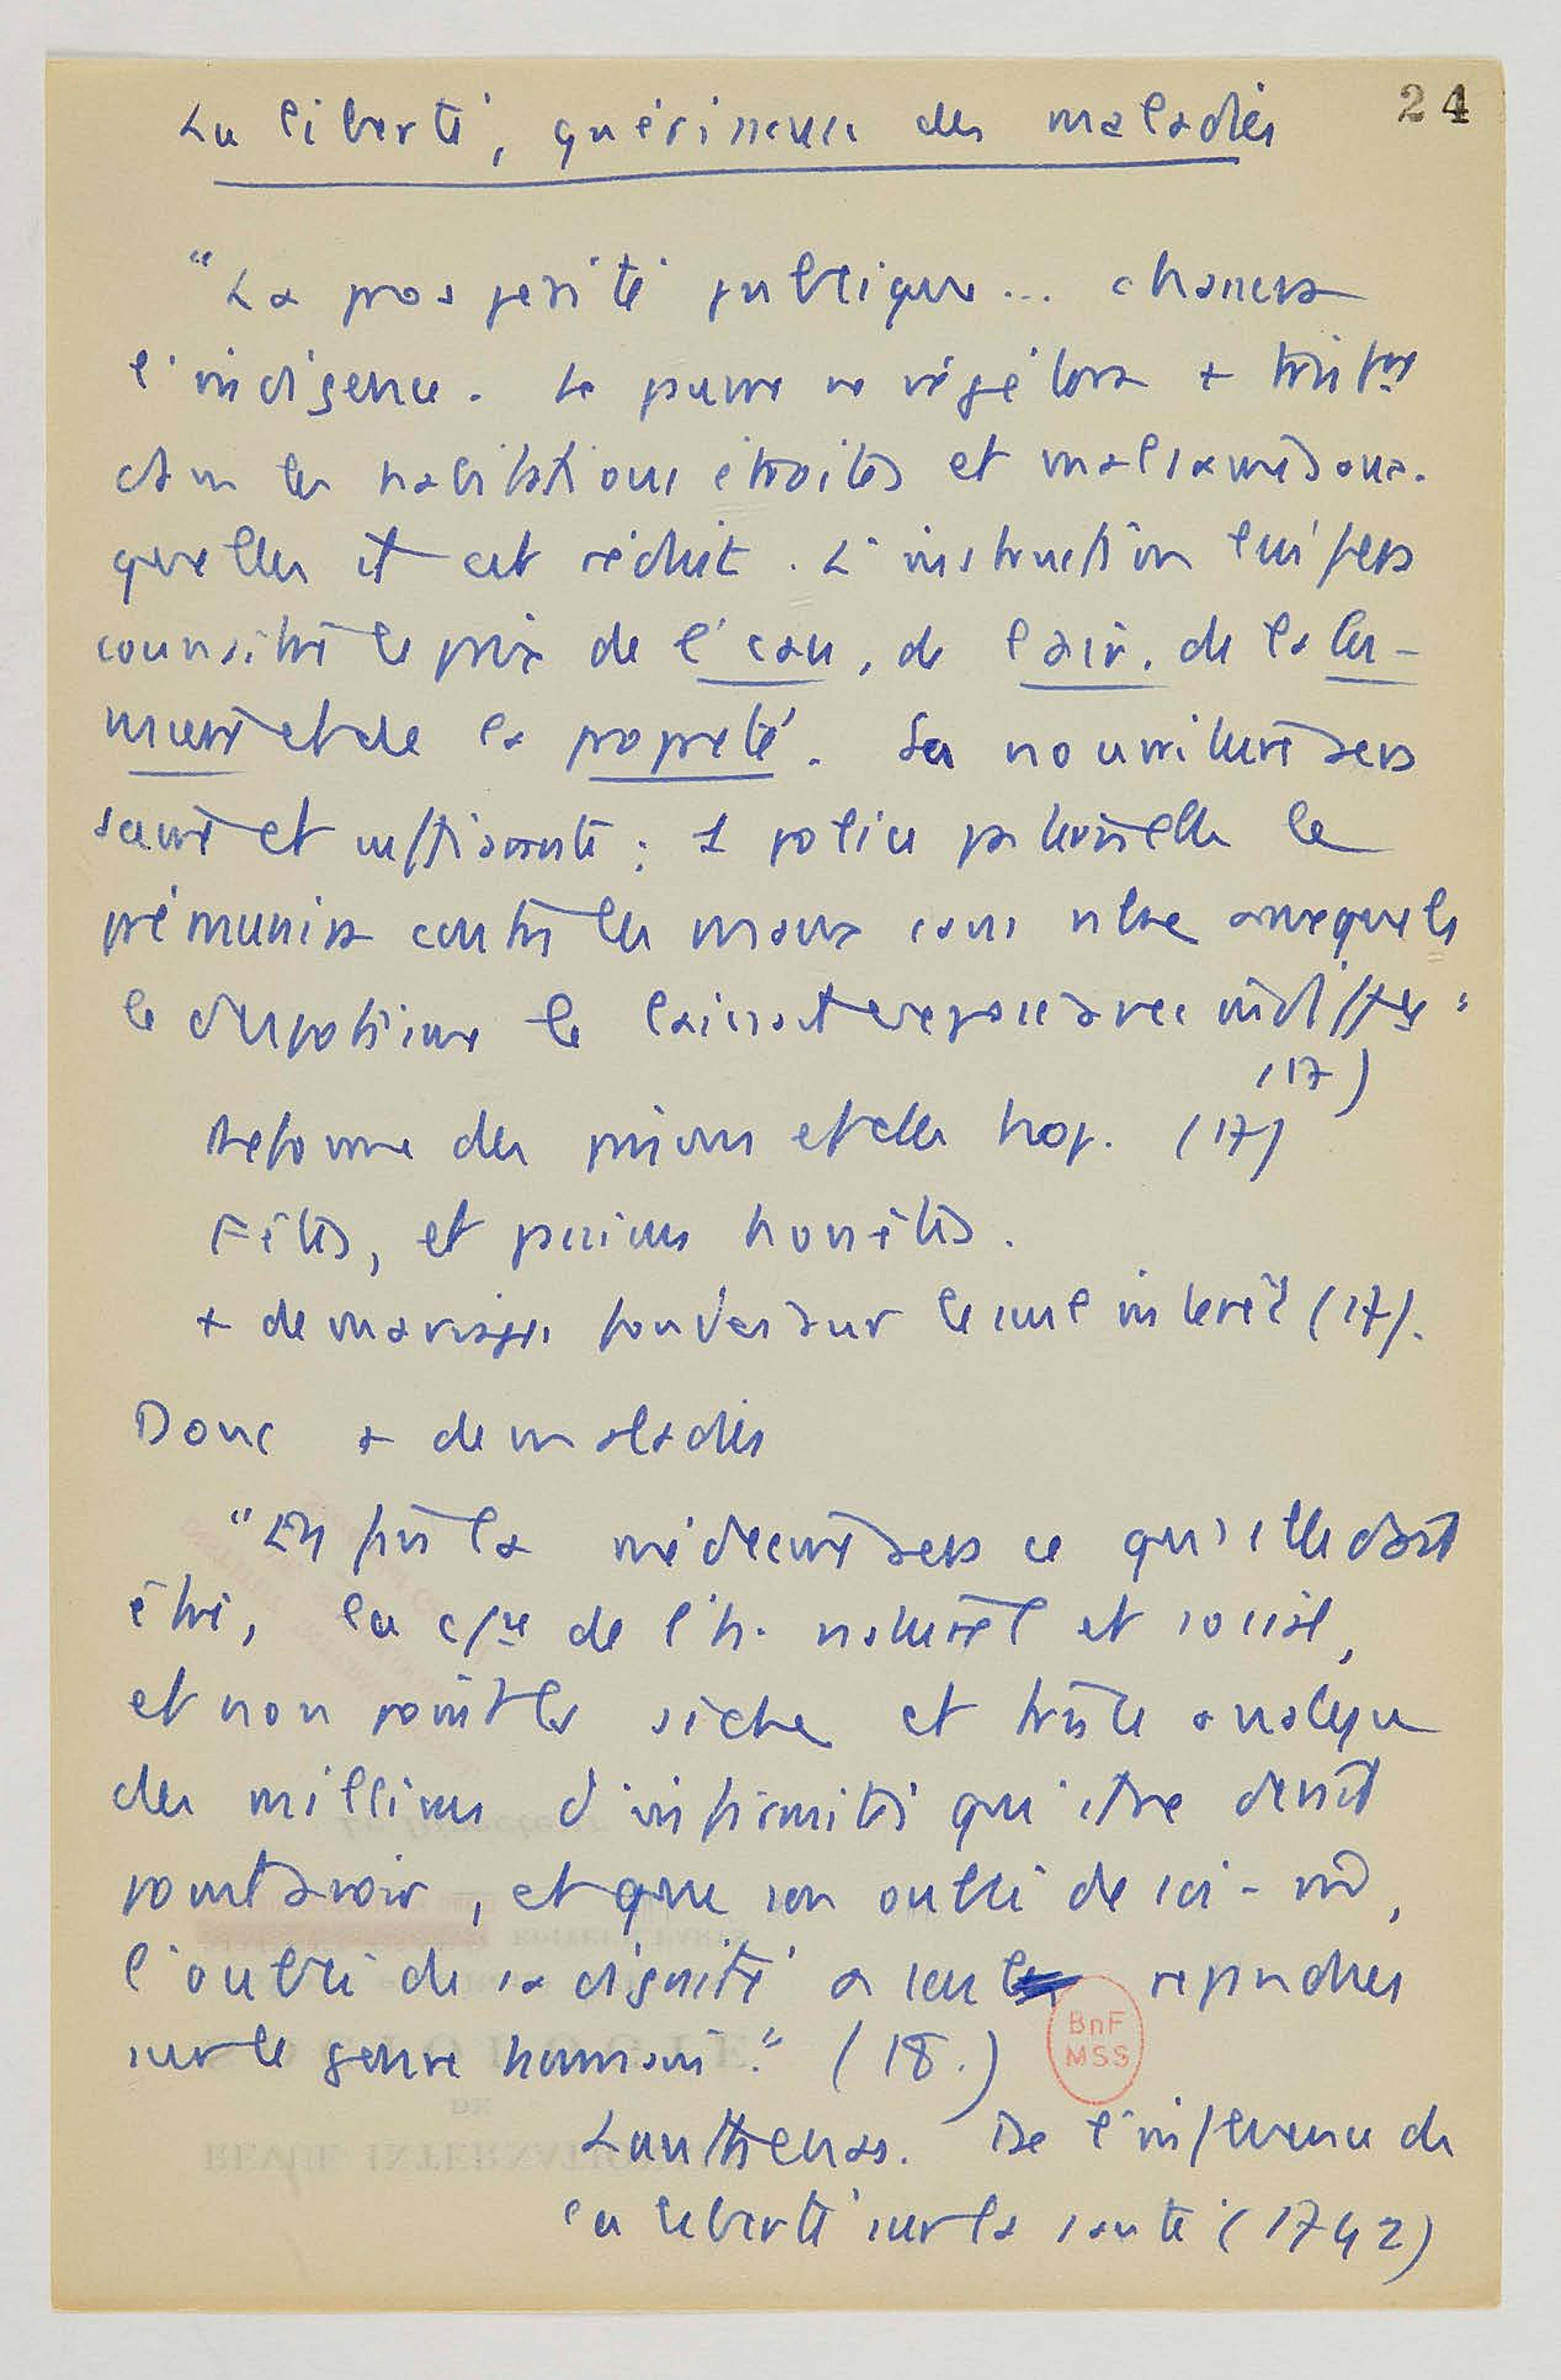 24
La liberté, guérisseuse des maladies
"La prosperité publique... chassera
l'indigence. Le pauvre ne végétera + tristmt
dans les habitations étroites et malsaines aux-
quelles il est réduit. L'instruction lui fera
connaître le prix de l'eau, de l'air, de la lu-
mière et de la propreté. Sa nourriture sera
saine et suffisante ; 1 police paternelle le
prémunira contre les maux sans nbre auxquels
le despotisme le laissait exposé avec indiffce"
(17)
Reforme des prisons et des hop. (17)
Fêtes, et passions honnêtes.
+ de mariages fondés sur le seul intérêt (17).
Donc + de maladies
"Enfin la médecine sera ce qu'elle doit
être, la csce de l'h. naturel et social,
et non point la sèche et triste analyse
des millions d'infirmités qu'il ne devait
point avoir, et que son oubli de soi-m̂,
l'oubli de sa dignité a seul repandues
sur le genre humain." (18.)
BnF
MSS
Lanthenas. De l'influence de
la liberté sur la santé (1742)